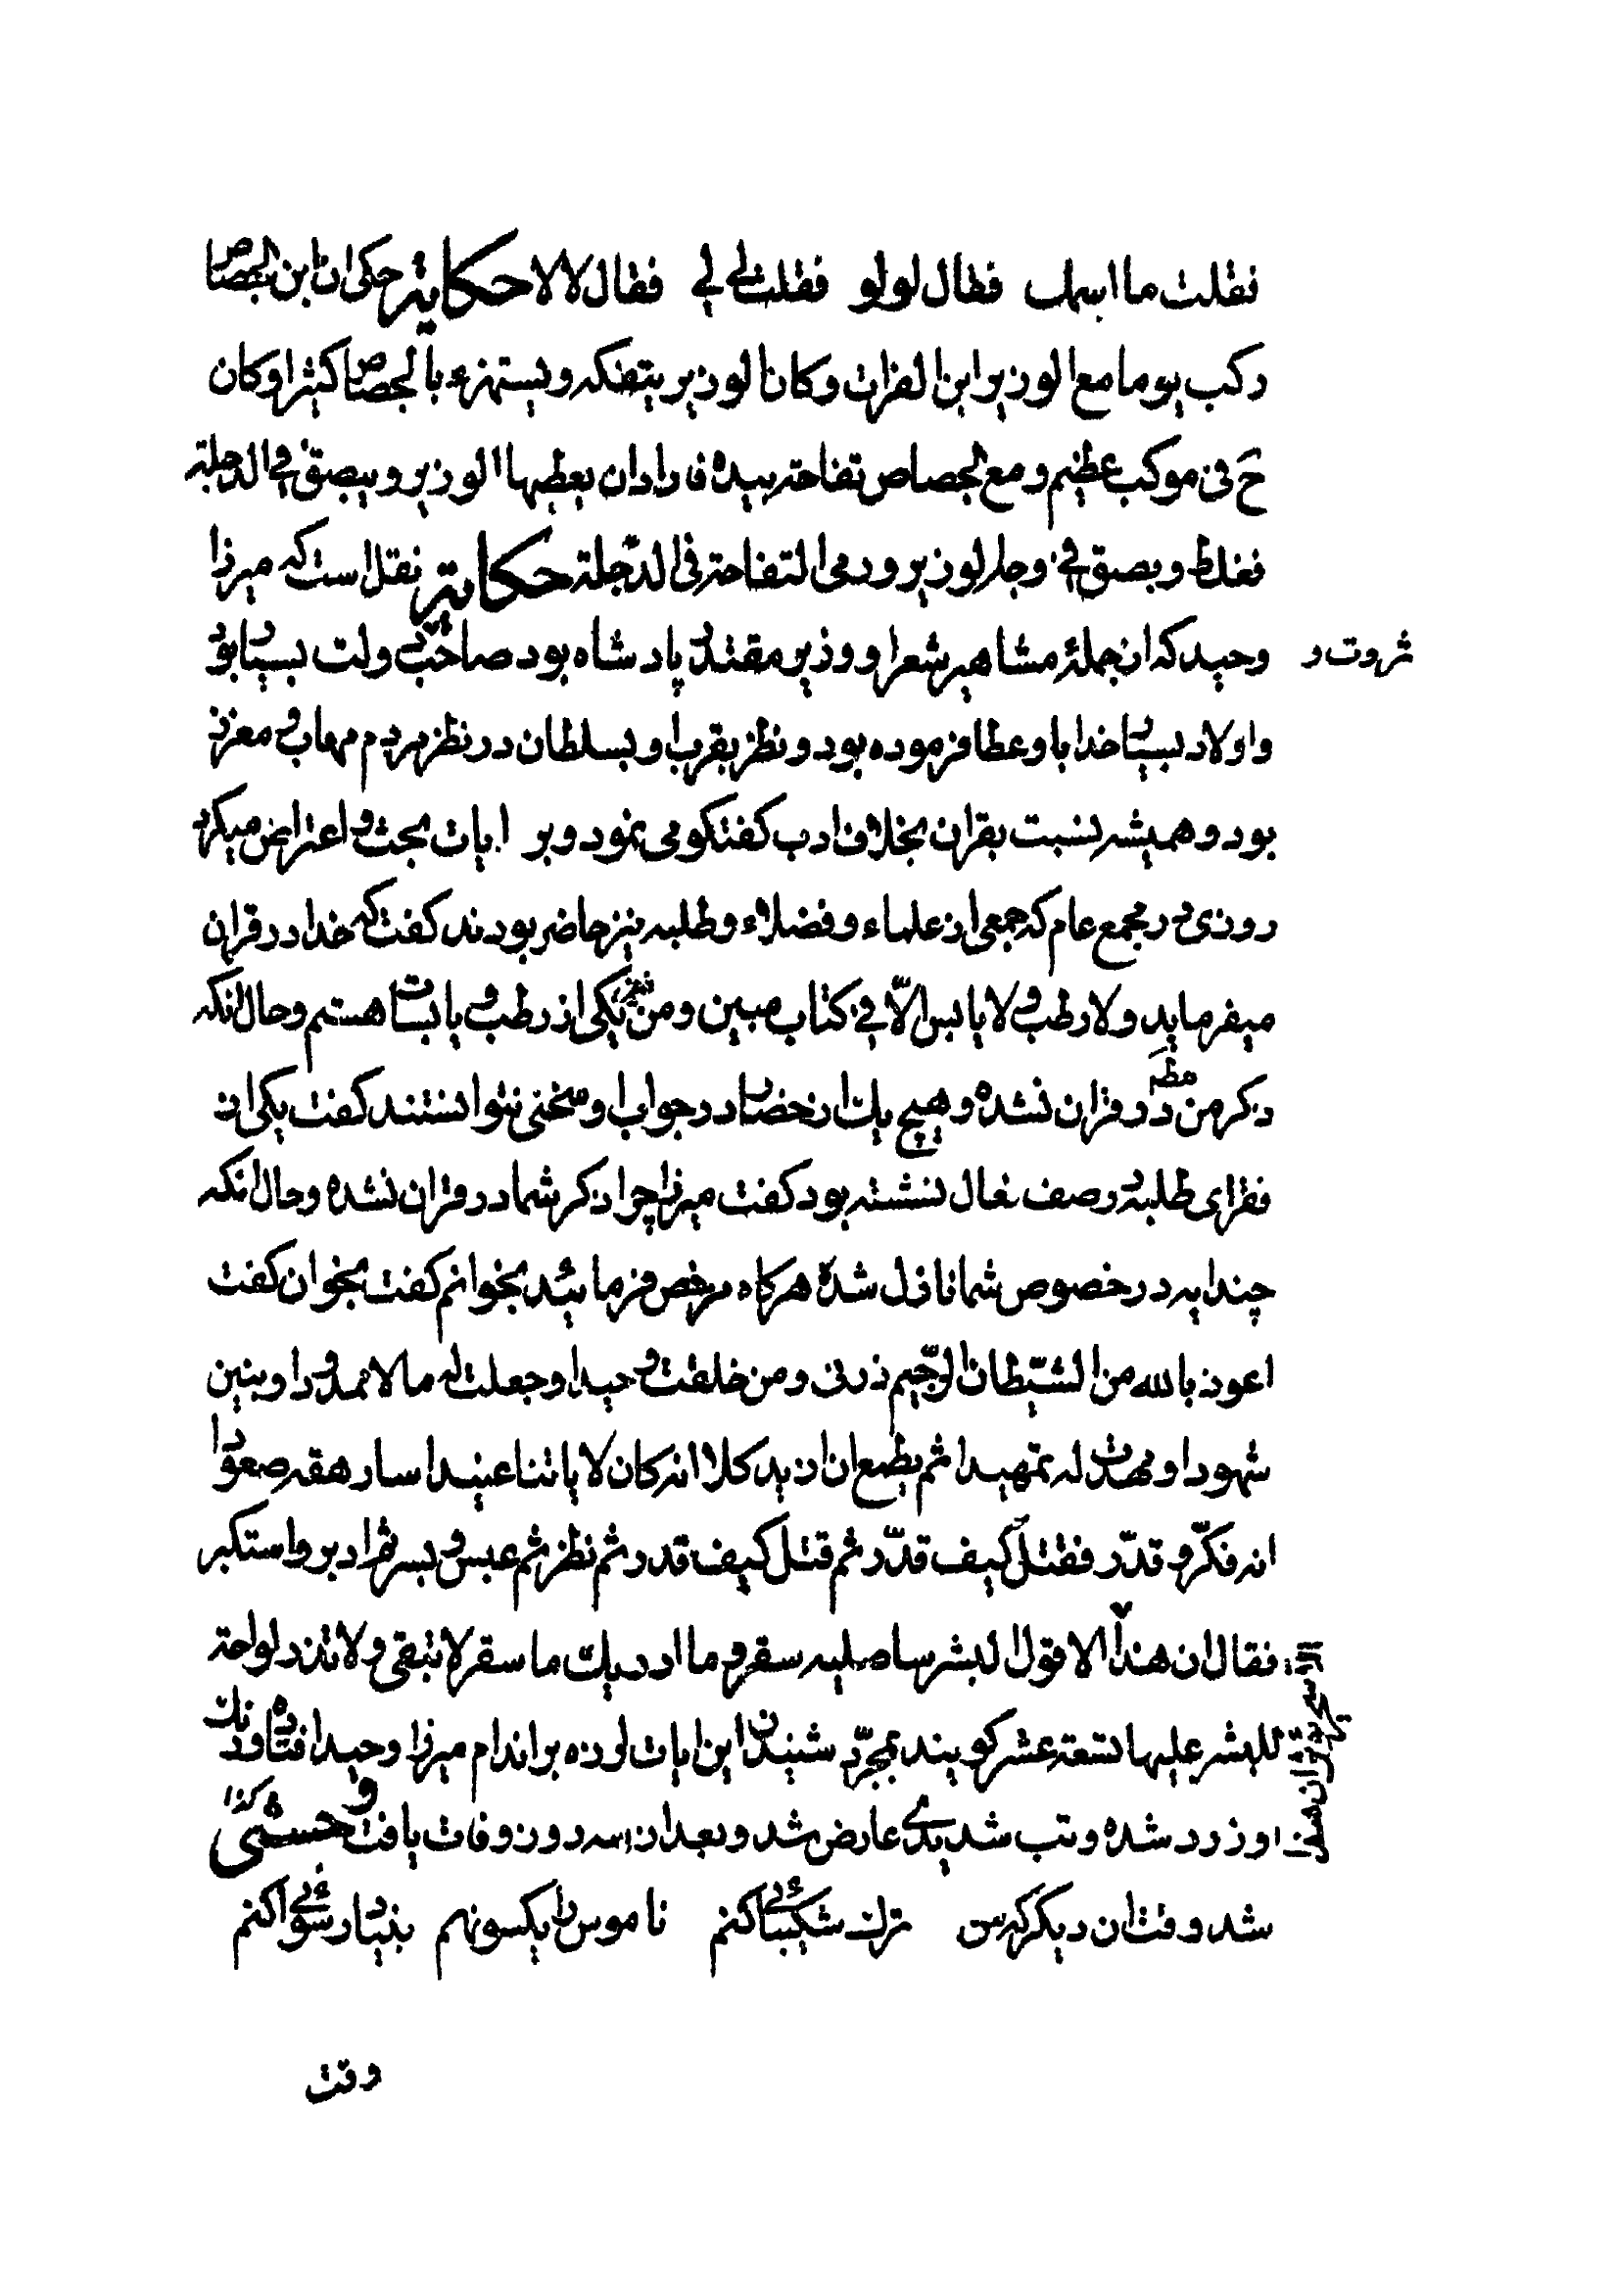 فقلت ما اسمك فقال لولو فقلت لي لي فقال لا لا حكاية حكی ان ابن الجصاص
ركب يوما مع الوزير ابن الفرات و كان الوزير يتفكه و يستهزء بالجصاص كثيرا و كان
ح في موكب عظيم و مع الجصاص تفاحة بيده فاراد ان يعطيها الوزير و يبصق في الدجلة
فغلط و بصق في وجه الوزير و رمی التفاحة فی الدّجلة حكاية نقل است كه ميرزا
وحيد كه از جملۀ مشاهير شعرا و وزير مقتدر پادشاه بود صاحب دولت بسيار بود
ثروت و
و اولاد بسيار خدا باو عطا فرموده بود و نظر بقرب او بسلطان در نظر مردم مهاب و معزز
بود و هميشه نسبت بقران بخلاف ادب كفتكو می نمود و بر ايات بحث و اعتراض ميكرد
روزی در مجمع عام كه جمعی از علماء و فضلاء و طلبه نيز حاضر بودند كفت كه خدا در قران
ميفرمايد و لا رطب و لا يابس الّا في كتاب مبين و من نيز يكی از رطب و يابسات هستم و حال انكه
ذكر من در قران نشده و هيچ يك از حضار در جواب او سخنی نتوانستند كفت يكی از
فقرای طلبه در صف نعال نشسته بود كفت ميرزا چرا ذكر شما در قران نشده و حال انكه
چند ايه در خصوص شما نازل شده هركاه مرخص فرمائيد بخوانم كفت بخوان كفت
اعوذ بالله من الشّيطان الرّجيم ذرنی و من خلقت وحيدا و جعلت له مالا ممدودا و بنين
شهودا و مهدت له تمهيدا ثم يطمع ان ازيد كلا انه كان لاياتنا عنيدا سارهقه صعودا
انه فكّر و قدّر فقتل كيف قدّر ثم قتل كيف قدر ثم نظر ثم عبس و بسر ثم ادبر و استكبر
فقال ان هذا الا قول البشر ساصليه سقر و ما ادريك ما سقر لا تبقی و لا تذر لواحة
للبشر عليها تسعة عشر كويند بمجرّد شنيدن اين ايات لرزه بر اندام ميرزا وحيد افتاده و رنك
او زرد شده و تب شديدی عارض شد و بعد از سه روز وفات يافت وحشی كذا
شد وقت ان ديكر كه من ترك شكيبائی كنم ناموس را يكسو نهم بنياد رسوائی كنم
وقت